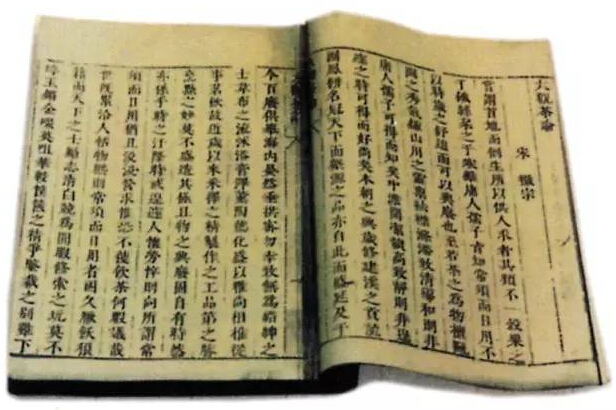 大觀茶論
宋 徽宗
嘗謂首地而倒生所以供人求者其類不一穀粟之
于饑絲枲之于寒雖庸人孺子皆知常須而日用不
以時歲之舒迫而可以興廢也至若茶之為物擅甌
閩之秀氣鍾山川之靈稟祛襟滌滯致清導和則非
庸人孺子可得而知矣中澹閒潔韻高致靜則非遑
遽之時可得而好尚矣本朝之興歲修建溪之貢龍
團鳳餅名冠天下而壑源之品亦自此而盛延及于
今百廢俱舉海內晏然垂拱密勿幸致無為縉紳之
士韋布之流沐浴膏澤薰陶德化盛以雅尚相推從
事茗飲故近歲以來采擇之精製作之工品第之勝
烹點之妙莫不盛造其極且物之興廢固自有時然
亦係乎時之汙隆時或遑遽人懷勞悴則向所謂常
須而日用猶且汲汲營求惟恐不獲飲茶何暇議哉
世既累洽人恬物熙則常須而日用者固久厭飫狼
籍而天下之士勵志清白競為閒暇修索之玩莫不
碎玉鏘金啜英咀華較筐篋之精爭鑒裁之別雖下